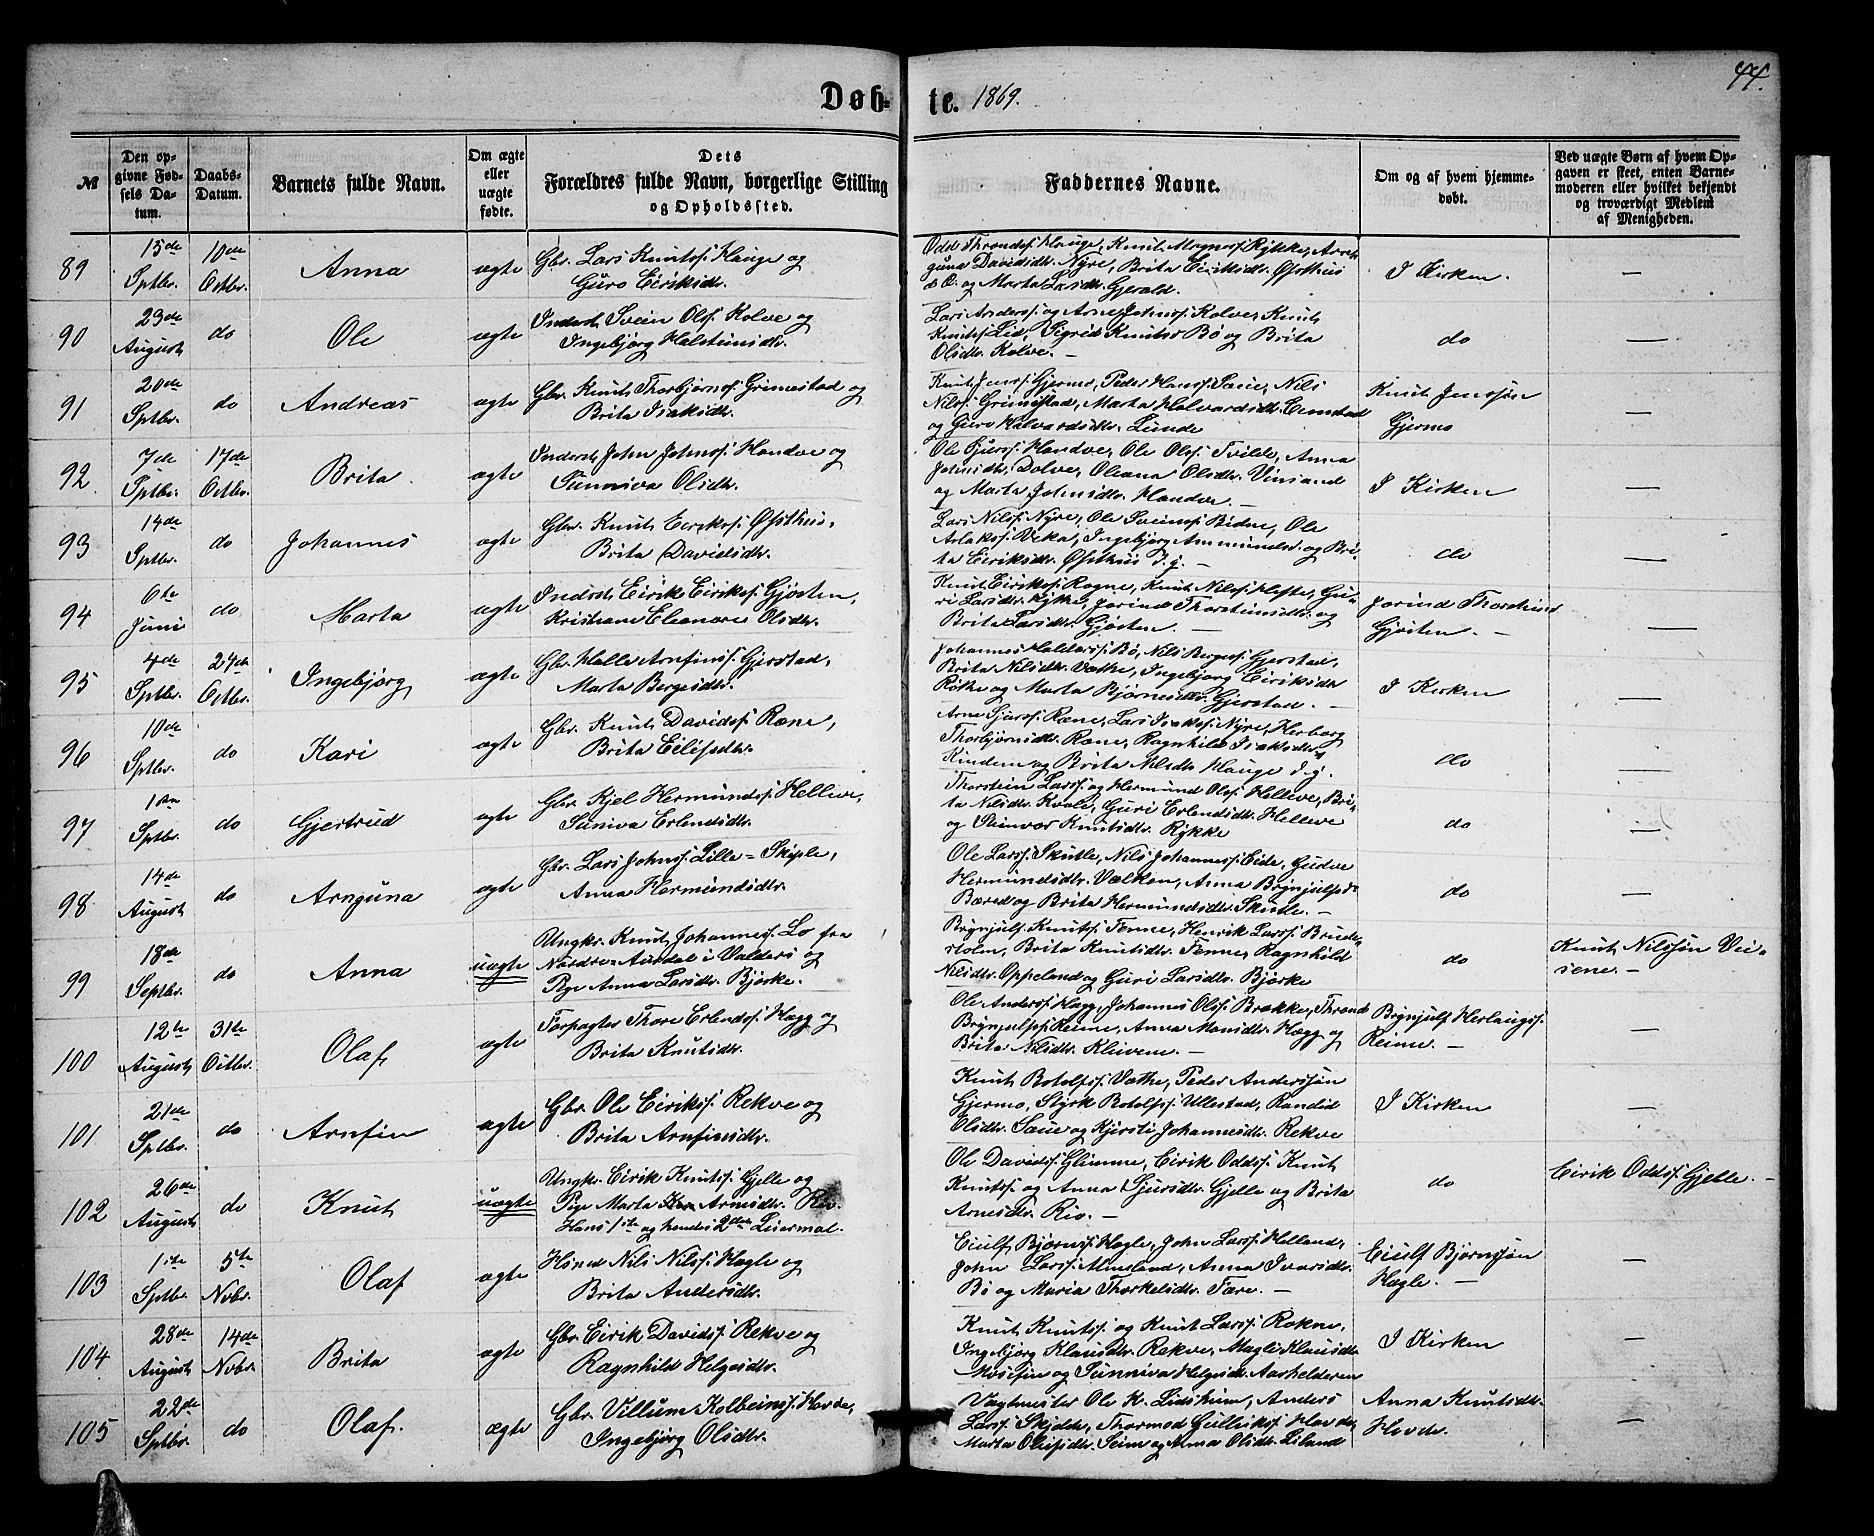 Døb-te. 1869.
44.
№
Den opgivne Fødsels Datum.
Daabs-Datum.
Barnets fulde Navn.
Om ægte eller uægte fødte.
Dets Forældres fulde Navn, borgerlige Stilling og Opholdssted.
Faddernes Navne.
Om og af hvem hjemmedøbt.
Ved uægte Børn af hvem Opgaven er skeet, enten Barnemoderen eller hvilket bekjendt og troværdigt Medlem af Menigheden.
89 15de Sptbr. 10de Octbr. Anna ægte Gbr. Lars Knutss. Hauge og
Guro Eiriksdtr.
Odd Throndss. Hauge, Knut Magness. Rykke, Arn-
guna Davidsdtr. Nyre, Brita Eiriksdtr. Østhus
og Marta Larsdtr. Gjerald.
I Kirken. —
90 23de August do Ole ægte Inderst Svein Olss. Kolve og
Ingebjørg Helsteinsdtr.
Lars Anderss. og Arne Johnss. Kolve, Knut
Knutss. Lid, Sigrid Knutsd. Bø og Brita
Olsdtr. Kolve. —
do —
91 20de Sptbr. do Andreas ægte Gbr. Knut Thorbjørnss. Grimestad og
Brita Isaksdtr.
Knut Jenss. Gjermo, Peder Hanss. Saue, Nils
Nilss. Grimestad, Marta Halvardsdtr. Eimstad
og Guro Halvardsdtr. Lunde
Knut Jenssøn
Gjermo —
92 7de Sptbr. 17de Octbr. Brita ægte Inderst John Johnss. Handve og
Sunniva Olsdtr.
Ole Gurss. Handve, Ole Olss. Tvilde, Anna
Johnsdtr. Dolve, Oleana Olsdtr. Vinsand
og Marta Johnsdtr. Handve. —
I Kirken —
93 14de Sptbr. do Johannes ægte Gbr. Knut Eirikss. Østhus,
Brita Davidsdtr.
Lars Nilss. Nyre, Ole Sveinss. Bidne, Ole
Aslakss. Veka, Ingebjørg Ammundsd. og Bri-
ta Eiriksdtr. Østhus d.y. —
do —
94 6te Juni do Marta ægte Inderst Eirik Eirikss. Gjøsten,
Kristiane Eleanore Olsdtr.
Knut Eirikss. Rogne, Knut Nilss. Hefte, Gu-
ri Larsdtr. Rykke, Jorind Thorsteinsdtr. og
Brita Larsdtr. Gjøsten. —
Jorind Thorsteinsd
Gjøsten. — —
95 4de Sptbr. 24de Octbr. Ingebjørg ægte Gbr. Halle Arnfinss. Gjerstad,
Marta Bergesdtr.
Johannes Halderss. Bø, Nils Bergess. Gjerstad,
Brita Nilsdtr. Væthe, Ingebjørg Eiriksdtr.
Røthe og Marta Bjørnesdtr. Gjerstad. —
I Kirken —
96 10de Sptbr. do Kari ægte Gbr. Knut Davidss. Rene,
Brita Eilifsdtr.
Arne Sjurss. Rene, Lars Isakss. Nyre, Herborg
Thorbjørnsdtr. Rene, Ragnhild Isaksdtr.
Kindem og Brita Nilsdtr. Hauge d.y.
do —
97 1ste Sptbr. do Gjertrud ægte Gbr. Kjel Hermundss. Helleve,
Suniva Erlendsdtr.
Thorstein Larss. og Hermund Olss. Helleve, Bri-
ta Nilsdtr. Kvale, Guri Erlendsdtr. Helleve
og Steinvor Knutsdtr. Rykke
do —
98 14de August do Arnguna ægte Gbr. Lars Johnss. Lille-Skiple,
Anna Hermundsdtr.
Ole Larss. Skutle, Nils Johanness. Eide, Gudve
Hermundsdtr. Valken, Anna Brynjulfsd.
og Brita Hermundsdtr. Skutle. —
do —
99 18de Septbr. do Anna uægte Ungkr. Knut Johanness. Lo fra
Nordre-Aurdal i Valders og
Pige Anna Larsdtr. Bjørke.
Brynjulf Knutss. Tenne, Henrik Larss. Bruden-
holm, Brita Knutsdtr. Tenne, Ragnhild
Nilsdtr. Oppeland og Guri Larsdtr. Bjørke
do Knut Nilssøn Vei-
sene. —
100 12te August 31te Octbr. Olaf ægte Forpagter Thore Erlendss. Hægg og
Brita Knutsdtr.
Ole Anderss. Hægg, Johannes Olss. Brække, Thrond
Brynjulfss. Reime, Anna Monsdtr. Hægg og
Brita Nilsdtr. Klivene. —
Brynjulf Herlaugss.
Reime. — —
101 21de Sptbr. do Arnfin ægte Gbr. Ole Eirikss. Rekve og
Brita Arnfinsdtr.
Knut Botolfss. Væthe, Peder Anderssøn
Gjermo, Styrk Botolfss. Ullestad, Randid
Olsdtr. Saue og Kjersti Johannesdtr. Rekve
I Kirken —
102 26de August do Knut uægte Ungkr. Eirik Knutss. Gjelle og
Pige Marta Arnesdtr. Rio.
Hans 1ste og hendes 2det Leiermal.
Ole Davidss. Glimme, Eirik Oddss. Knut
Knutss. og Anna Sjursdtr. Gjelle og Brita
Arnesdtr. Rio. —
do Eirik Oddss. Gjelle. —
103 1ste Sptbr. 5te Novbr. Olaf ægte Hsmd Nils Nilss. Hægle og
Brita Andersdtr.
Eiulf Bjørnss. Hægle, John Larss. Helland,
John Larss. Almeland, Anna Ivarsdtr.
Bø og Maria Thorkelsdtr. Fære. —
Eiulf Bjørnssøn
Hægle. — —
104 28de August 14de Novbr. Brita ægte Gbr. Eirik Davidss. Rekve og
Ragnhild Helgesdtr.
Knut Knutss. og Knut Larss. Rokne,
Ingebjørg Klausdtr. Rekve, Magli Klausdtr.
Mosefin og Sunniva Helgesdtr. Aarhelderen
I Kirken —
105 22de Sptbr. do Olaf. ægte Gbr. Villum Kolbeinss. Hovde,
Ingebjørg Olsdtr.
Vagtmester Ole K. Lidsheim, Anders
Larss. Skjelde, Thormod Gullikss. Hovde,
Marta Olsdtr. Seim og Anna Olsdtr. Liland
Anna Knutsdtr.
Hovde. —